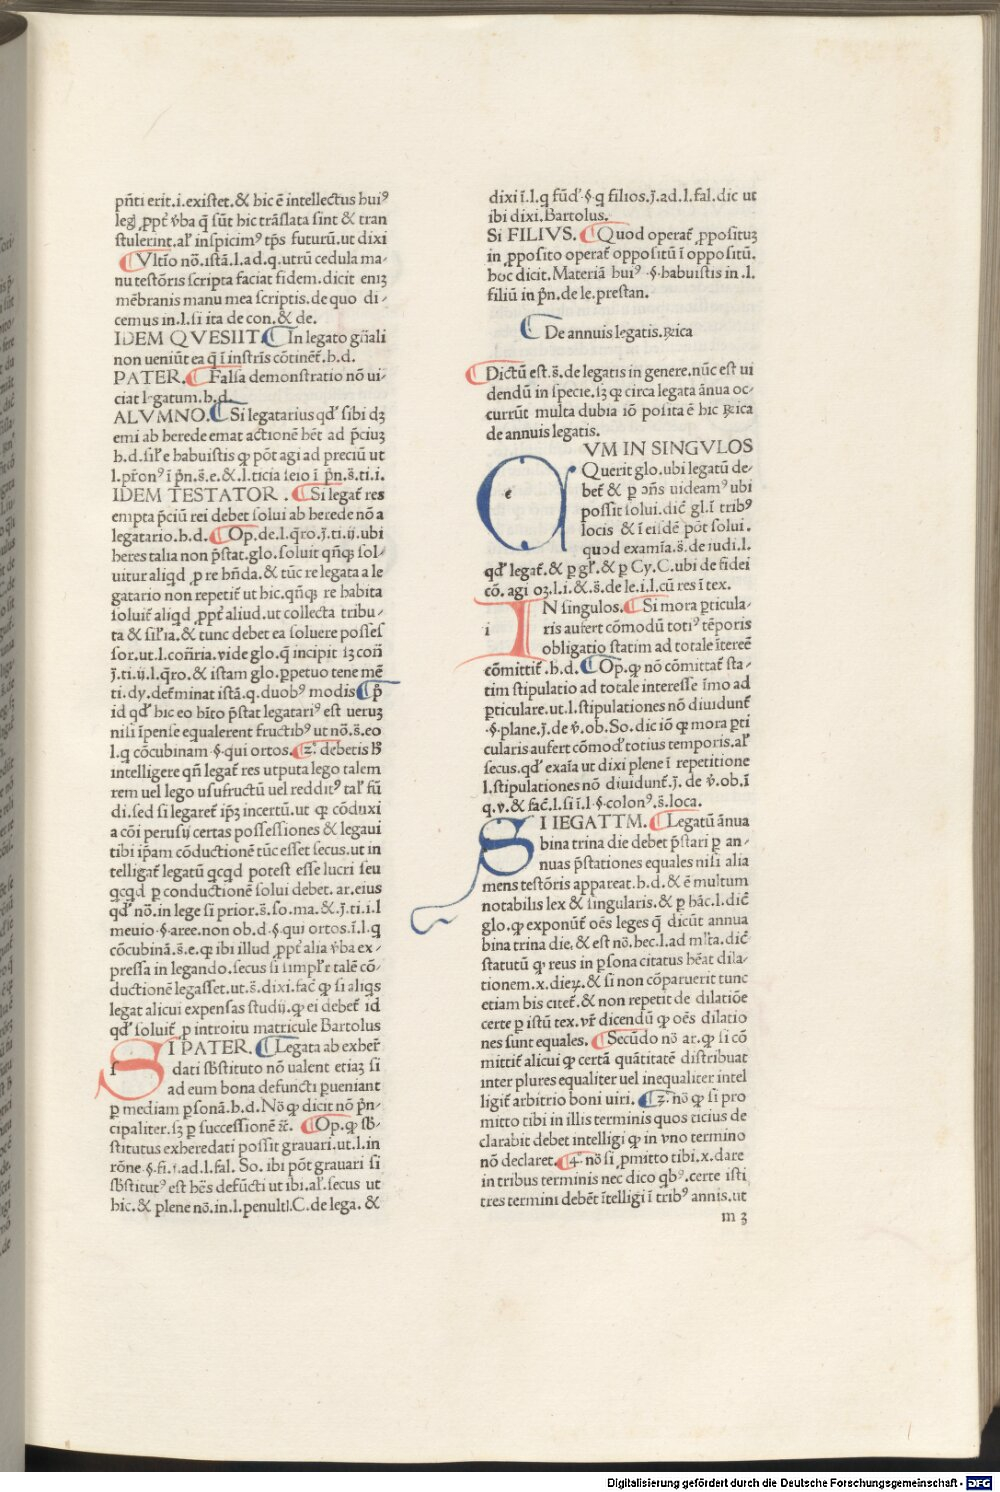 pñti erit.i.existet.& hic ē intellectus huiꝰ
legꝭ ꝓpt̃ ṽba q̃ sūt hic trãslata sint & tran
stulerint.al̓ inspicimꝰ tp̃s futurū.ut dixi
Vltīo nō.istã.l.ad.q.utrū cedula ma⸗
nu testõris scripta faciat fidem.dicit eniꝫ
mēbranis manu mea scriptis.de quo di⸗
cemus in.l.si ita de con.& de.
IDEM QVESIIT. In legato gñali
non ueniūt ea q̃ ĩ instrīs cōtinēt̃.h.d.
PATER. Falsa demonstratio nō ui⸗
ciat legatum.h.d.
ALVMNO. Si legatarius qd̓ sibi dꝫ
emi ab herede emat actionē hēt ad p̃ciuꝫ
h.d.sil̓r e habuistis ꝙ pōt agi ad preciū ut
l.pr̃onꝰ ĩ p̃n.s̃.e.& .l.ticia seio ĩ p̃n.s̃.ti.i.
IDEM TESTATOR . Si legat̃ res
empta p̃ciū rei debet solui ab herede nō a
legatario.h.d. Op.de.l.q̃ro.j̃.ti.ij.ubi
heres talia non p̃stat.glo.soluit qñqꝫ sol⸗
uitur aliqd ꝓ re hñda.& tūc re legata a le
gatario non repetit̃ ut hic.qñqꝫ re habita
soluit̃ aliqd ꝓpt̃ aliud.ut collecta tribu⸗
ta & sil̓ia.& tunc debet ea soluere posses
sor.ut.l.coñria.vide glo.q̃ incipit ꝫ coñ
j̃.ti.ij.l.q̃ro.& istam glo.ꝑpetuo tene mē
ti.dy.det̃minat istã.q.duobꝰ modis p̃
id qd̓ hic eo hīto p̃stat legatariꝰ est ueruꝫ
nisi īpense equalerent fructibꝰ ut nō.s̃.eo
l.q cōcubinam.§.qui ortos. ꝫͦ. debetis ħ
intelligere qñ legat̃ res utputa lego talem
rem uel lego usufructū uel redditꝰ tal̓ fū
di.sed si legaret ip̃ꝫ incertū.ut ꝙ cōduxi
a cōi perusij certas possessiones & legaui
tibi ip̃am cōductionē tūc esset secus.ut in
telligat̃ legatū qcqd potest esse lucri seu
qcqd ꝑ conductionē solui debet. ar.eius
qd̓ nō.in lege si prior.s̃.so.ma.&.j̃.ti.i.l
meuio.§.aree.non ob.d.§.qui ortos.ī.l.q
cōcubinã.s̃.e.ꝙ ibi illud ꝓpt̃ alia ṽba ex⸗
pressa in legando.secus si simpl̓r talē cō⸗
ductionē legasset.ut.s̃.dixi.fac̃ ꝙ si aliqs
legat alicui expensas studij.ꝙ ei debet̃ id
qd̓ soluit̃ ꝓ introitu matricule Bartolus
SI PATER. Legata ab exher̃
dati sb̃stituto nō ualent etiaꝫ si
ad eum bona defuncti pueniant
ꝑ mediam ꝑsonã.h.d.Nō ꝙ dicit nō p̃n⸗
cipaliter.sꝫ ꝑ successionē ⁊c̃. Op.ꝙ sb̃⸗
stitutus exheredati possit grauari.ut.l.in
rōne.§.fi.i.ad.l.fal. So. ibi pōt grauari si
sb̃stitutꝰ est hēs defūcti ut ibi.al̓.secus ut
hic.& plene nō.in.l.penultl.C.de lega. &
dixi ī.l.q fūd̓.§.q filios.j̃.ad.l.fal.dic ut
ibi dixi.Bartolus.
SI FILIVS. Quod operat̃ ꝓposituꝫ
in ꝓposito operat̃ oppositū ĩ oppositū.
hoc dicit.Materiã huiꝰ .§.habuistis in .l.
filiū in p̃n.de le.prestan.
De annuis legatis.Ꝛica
Dictū est.s̃.de legatis in genere.nūc est ui
dendū in specie.sꝫ ꝙ circa legata ãnua oc⸗
currūt multa dubia iō posita ē hic Ꝛica
de annuis legatis.
VM IN SINGVLOS
Querit glo.ubi legatū de⸗
bet̃ & ꝑ oñs uideamꝰ ubi
possit solui.dic̃ gl.ĩ tribꝰ
locis & ĩ eisdē pōt solui.
quod examīa.s̃.de iudi.l.
qd̓ legat̃.& ꝑ gl̓.& ꝑ Cy.C.ubi de fidei
cō. agi oꝫ.l.i.&.s̃.de le.i.l.cū res ĩ tex.
IN singulos. Si mora ꝑticula⸗
ris aufert cōmodū totiꝰ tēporis
obligatio statim ad totale ĩtereē
cōmittit̃.h.d. Op.ꝙ nō cōmittat̃ sta⸗
tim stipulatio ad totale interesse īmo ad
ꝑticulare.ut.l.stipulationes nō diuidunt̃
.§.plane.j̃.de ṽ.ob.So.dic iō ꝙ mora ꝑti
cularis aufert cōmod̓ totius temporis.al̓
secus.qd̓ exaīa ut dixi plene ĩ repetitione
l.stipulationes nō diuidunt̃.j̃. de ṽ.ob.ĩ
q.v.& fac̃.l.si ī.l.§.colonꝰ.s̃.loca.
SI lEGATTM. Legatū ãnua
bina trina die debet p̃stari ꝑ an⸗
nuas p̃stationes equales nisi alia
mens testōris appareat.h.d.& ē multum
notabilis lex & singularis.& ꝑ hãc.l.dic̃
glo.ꝙ exponūt̃ oēs leges q̃ dicūt annua
bina trina die.& est nō.hec.l.ad ml̓ta.dic̃
statutū ꝙ reus in ꝑsona citatus hēat dila⸗
tionem.x.dieꝝ.& si non cōparuerit tunc
etiam bis citet̃.& non repetit de dilatiōe
certe ꝑ istū tex.vr̃ dicendū ꝙ oēs dilatio
nes sunt equales. Secūdo nō ar.ꝙ si cō
mittit̃ alicui ꝙ certã quãtitatē distribuat
inter plures equaliter uel inequaliter intel
ligit̃ arbitrio boni uiri. ꝫͦ. nō ꝙ si pro
mitto tibi in illis terminis quos ticius de
clarabit debet intelligi ꝙ in vno termino
nō declaret. 4ͦ. nō si ꝓmitto tibi.x.dare
in tribus terminis nec dico qbꝰ.certe isti
tres termini debēt ītelligi ĩ tribꝰ annis.ut
m 3
Digitalisierung gefördert durch die Deutsche Forschungsgemeinschaft - DFG